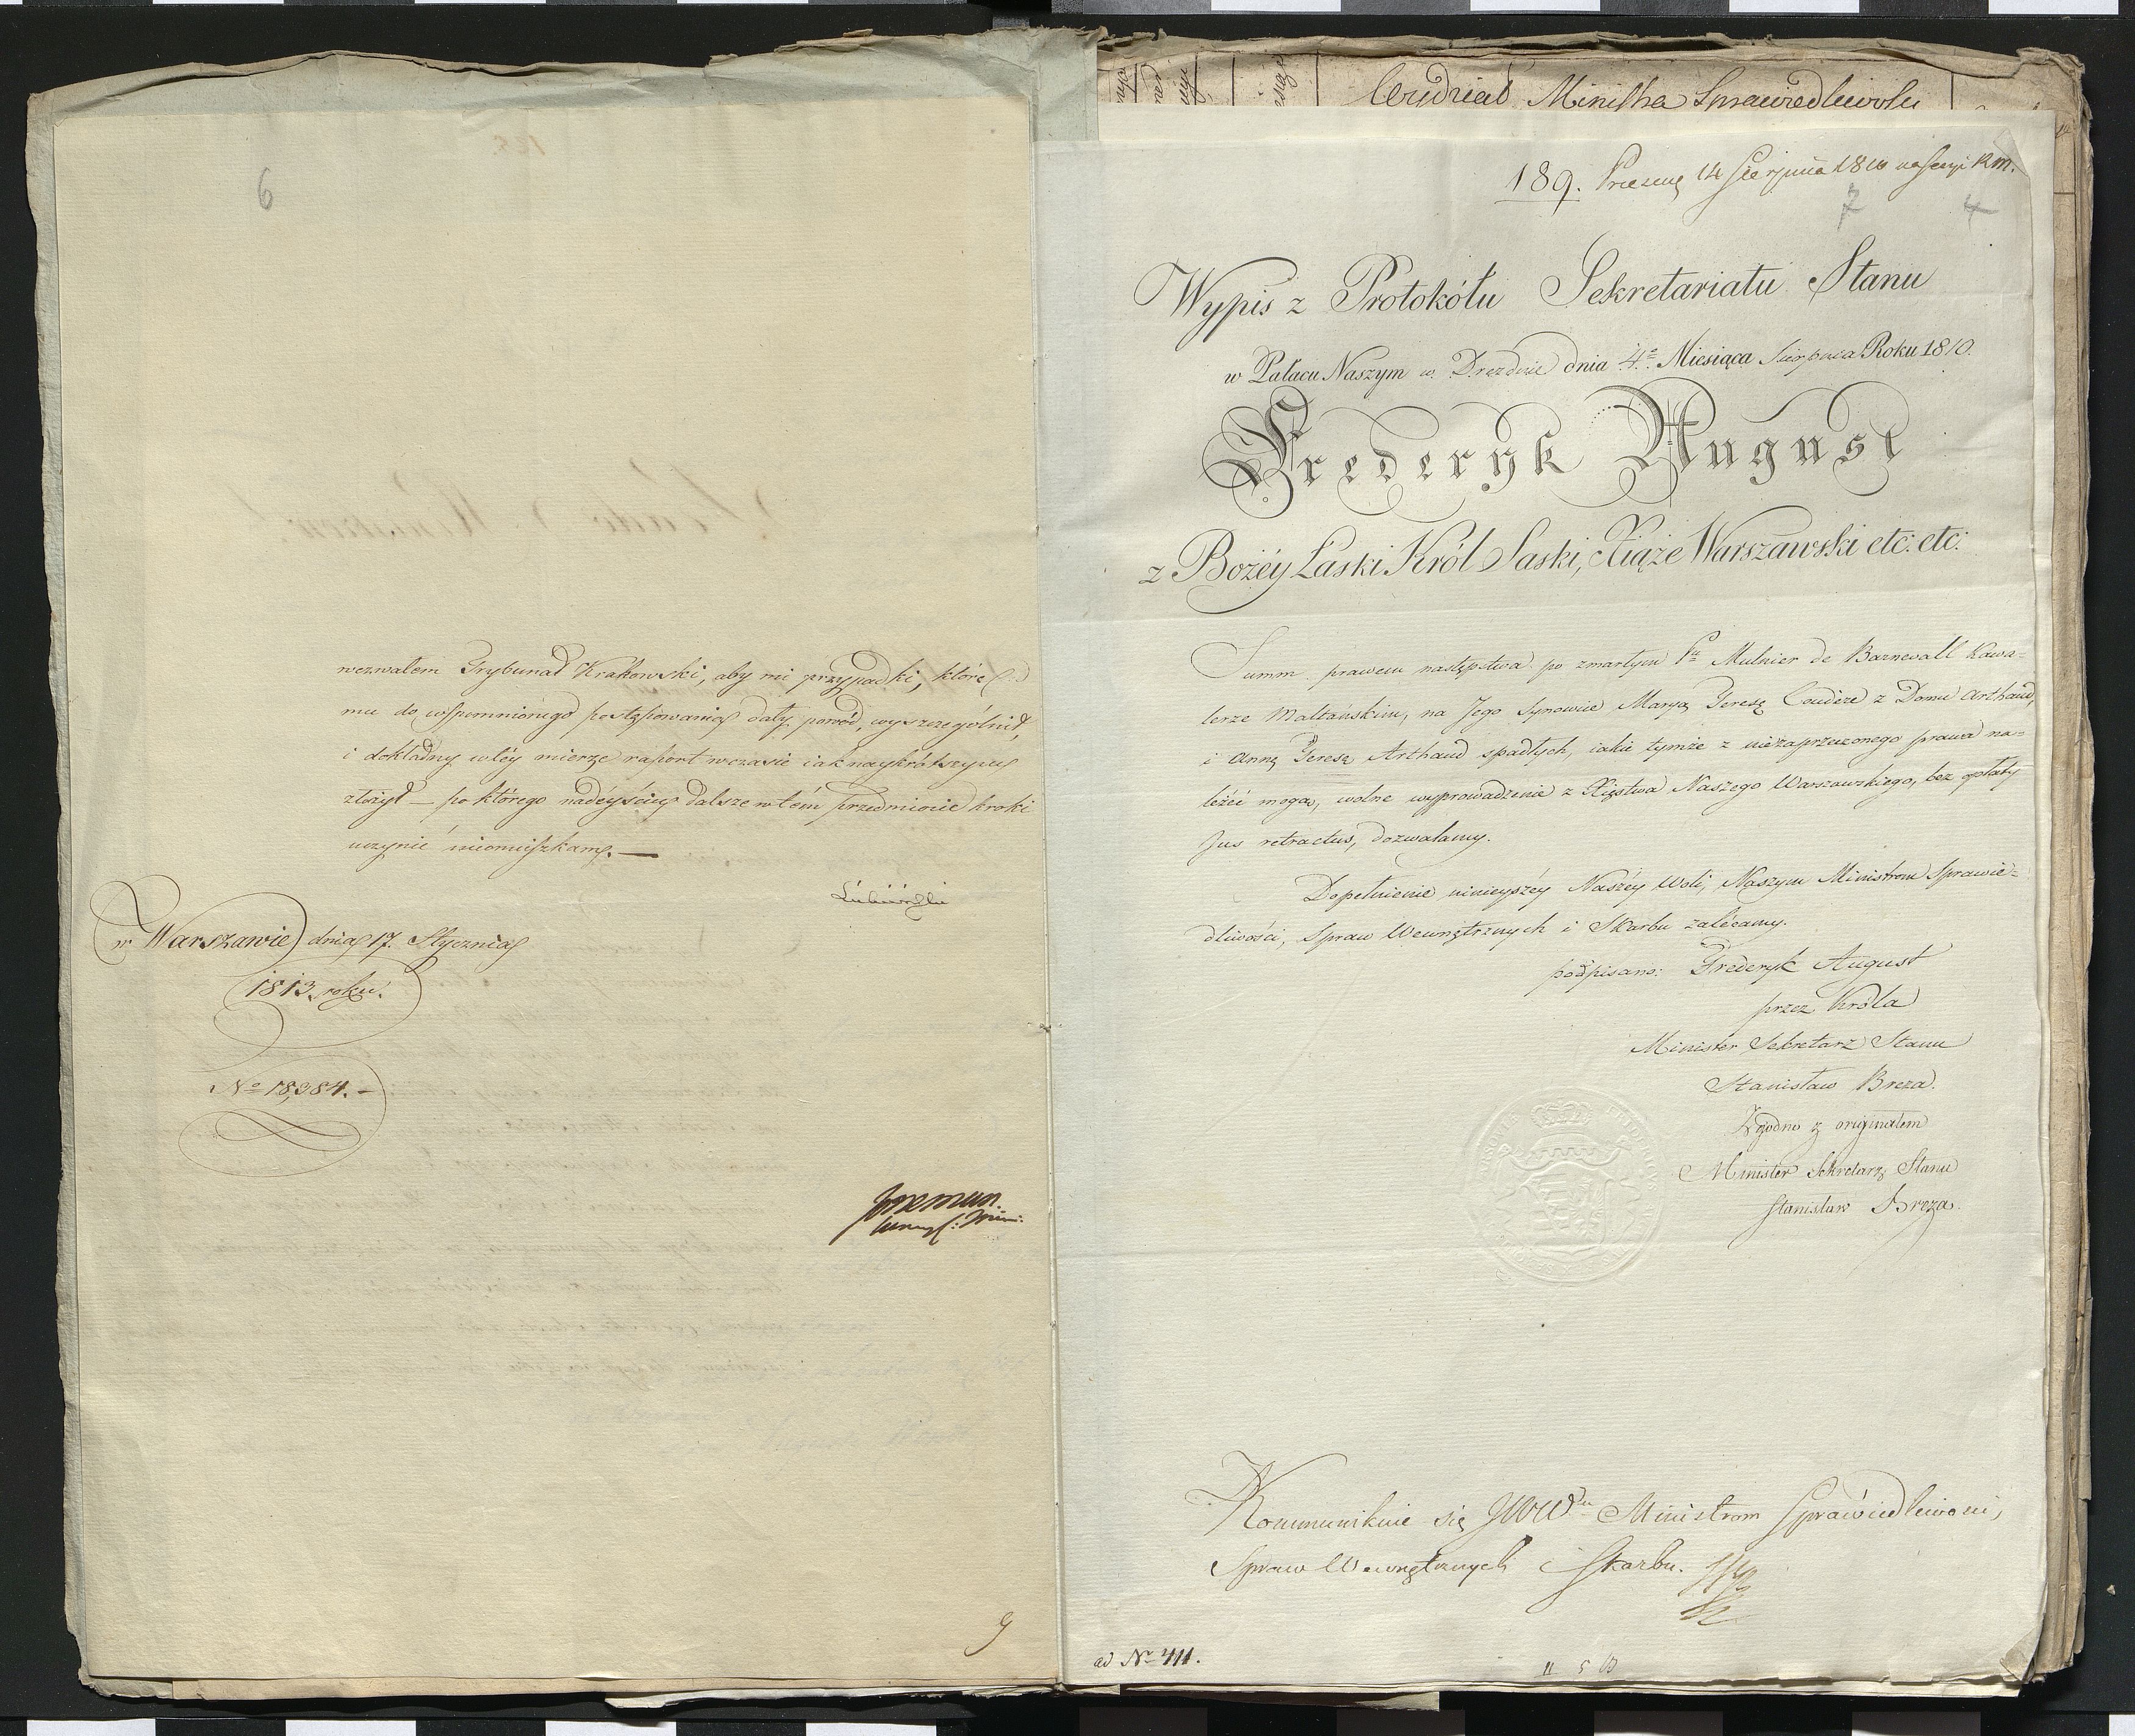 6
wezwałem Trybunał Krakowski, aby mi przypadki, które
mu do wspomnionego postąpowania dały powód, wyszczególnił,
i dokładny w téy mierze raport w czasie iak naykrótszym
złożył — po którego nadéyściu dalsze w tém przedmiocie kroki
uczynić nieomieszkam. —
Łubieński
w Warszawie dnia 17. Stycznia
1813 roku.
No 18,384. –
Wydział Ministra Sprawiedliwości
189. Prezent 14 Sierpnia 1810 na Sessyi R. M.
7 4
Wypis z Protokółu Sekretariatu Stanu
w Pałacu Naszym w Dreźdnie dnia 4o Miesiąca Sierpnia Roku 1810.
Frederyk August
z Bożéy Łaski Król Saski, Xiąże Warszawski etc: etc:
Summ prawem następstwa po zmarłym Pu Mulnier de Barnevall Kawa-
lerze Maltańskim, na Jego Synowice Maryą Teresę Coudere z Domu Arthaud,
i Annę Teresę Arthaud spadłych, iakie tymże z niezaprzeczonego prawa na-
leżéć mogą, wolne wyprowadzenie z Xięstwa Naszego Warszawskiego, bez opłaty
Jus retractus, dozwalamy.
Dopełnienie ninieyszéy Naszéy Woli, Naszym Ministrom Sprawie-
dliwości, Spraw Wewnętrznych i Skarbu zalécamy.
podpisano: Frederyk August
przez Króla
Minister Sekretarz Stanu
Stanisław Breza.
Zgodno z originałem
Minister Sekretarz Stanu
Stanisław Breza.
Kommunikuie się JWW Ministrom Sprawiedliwości,
Spraw Wewnętrznych i Skarbu.
ad No 411.